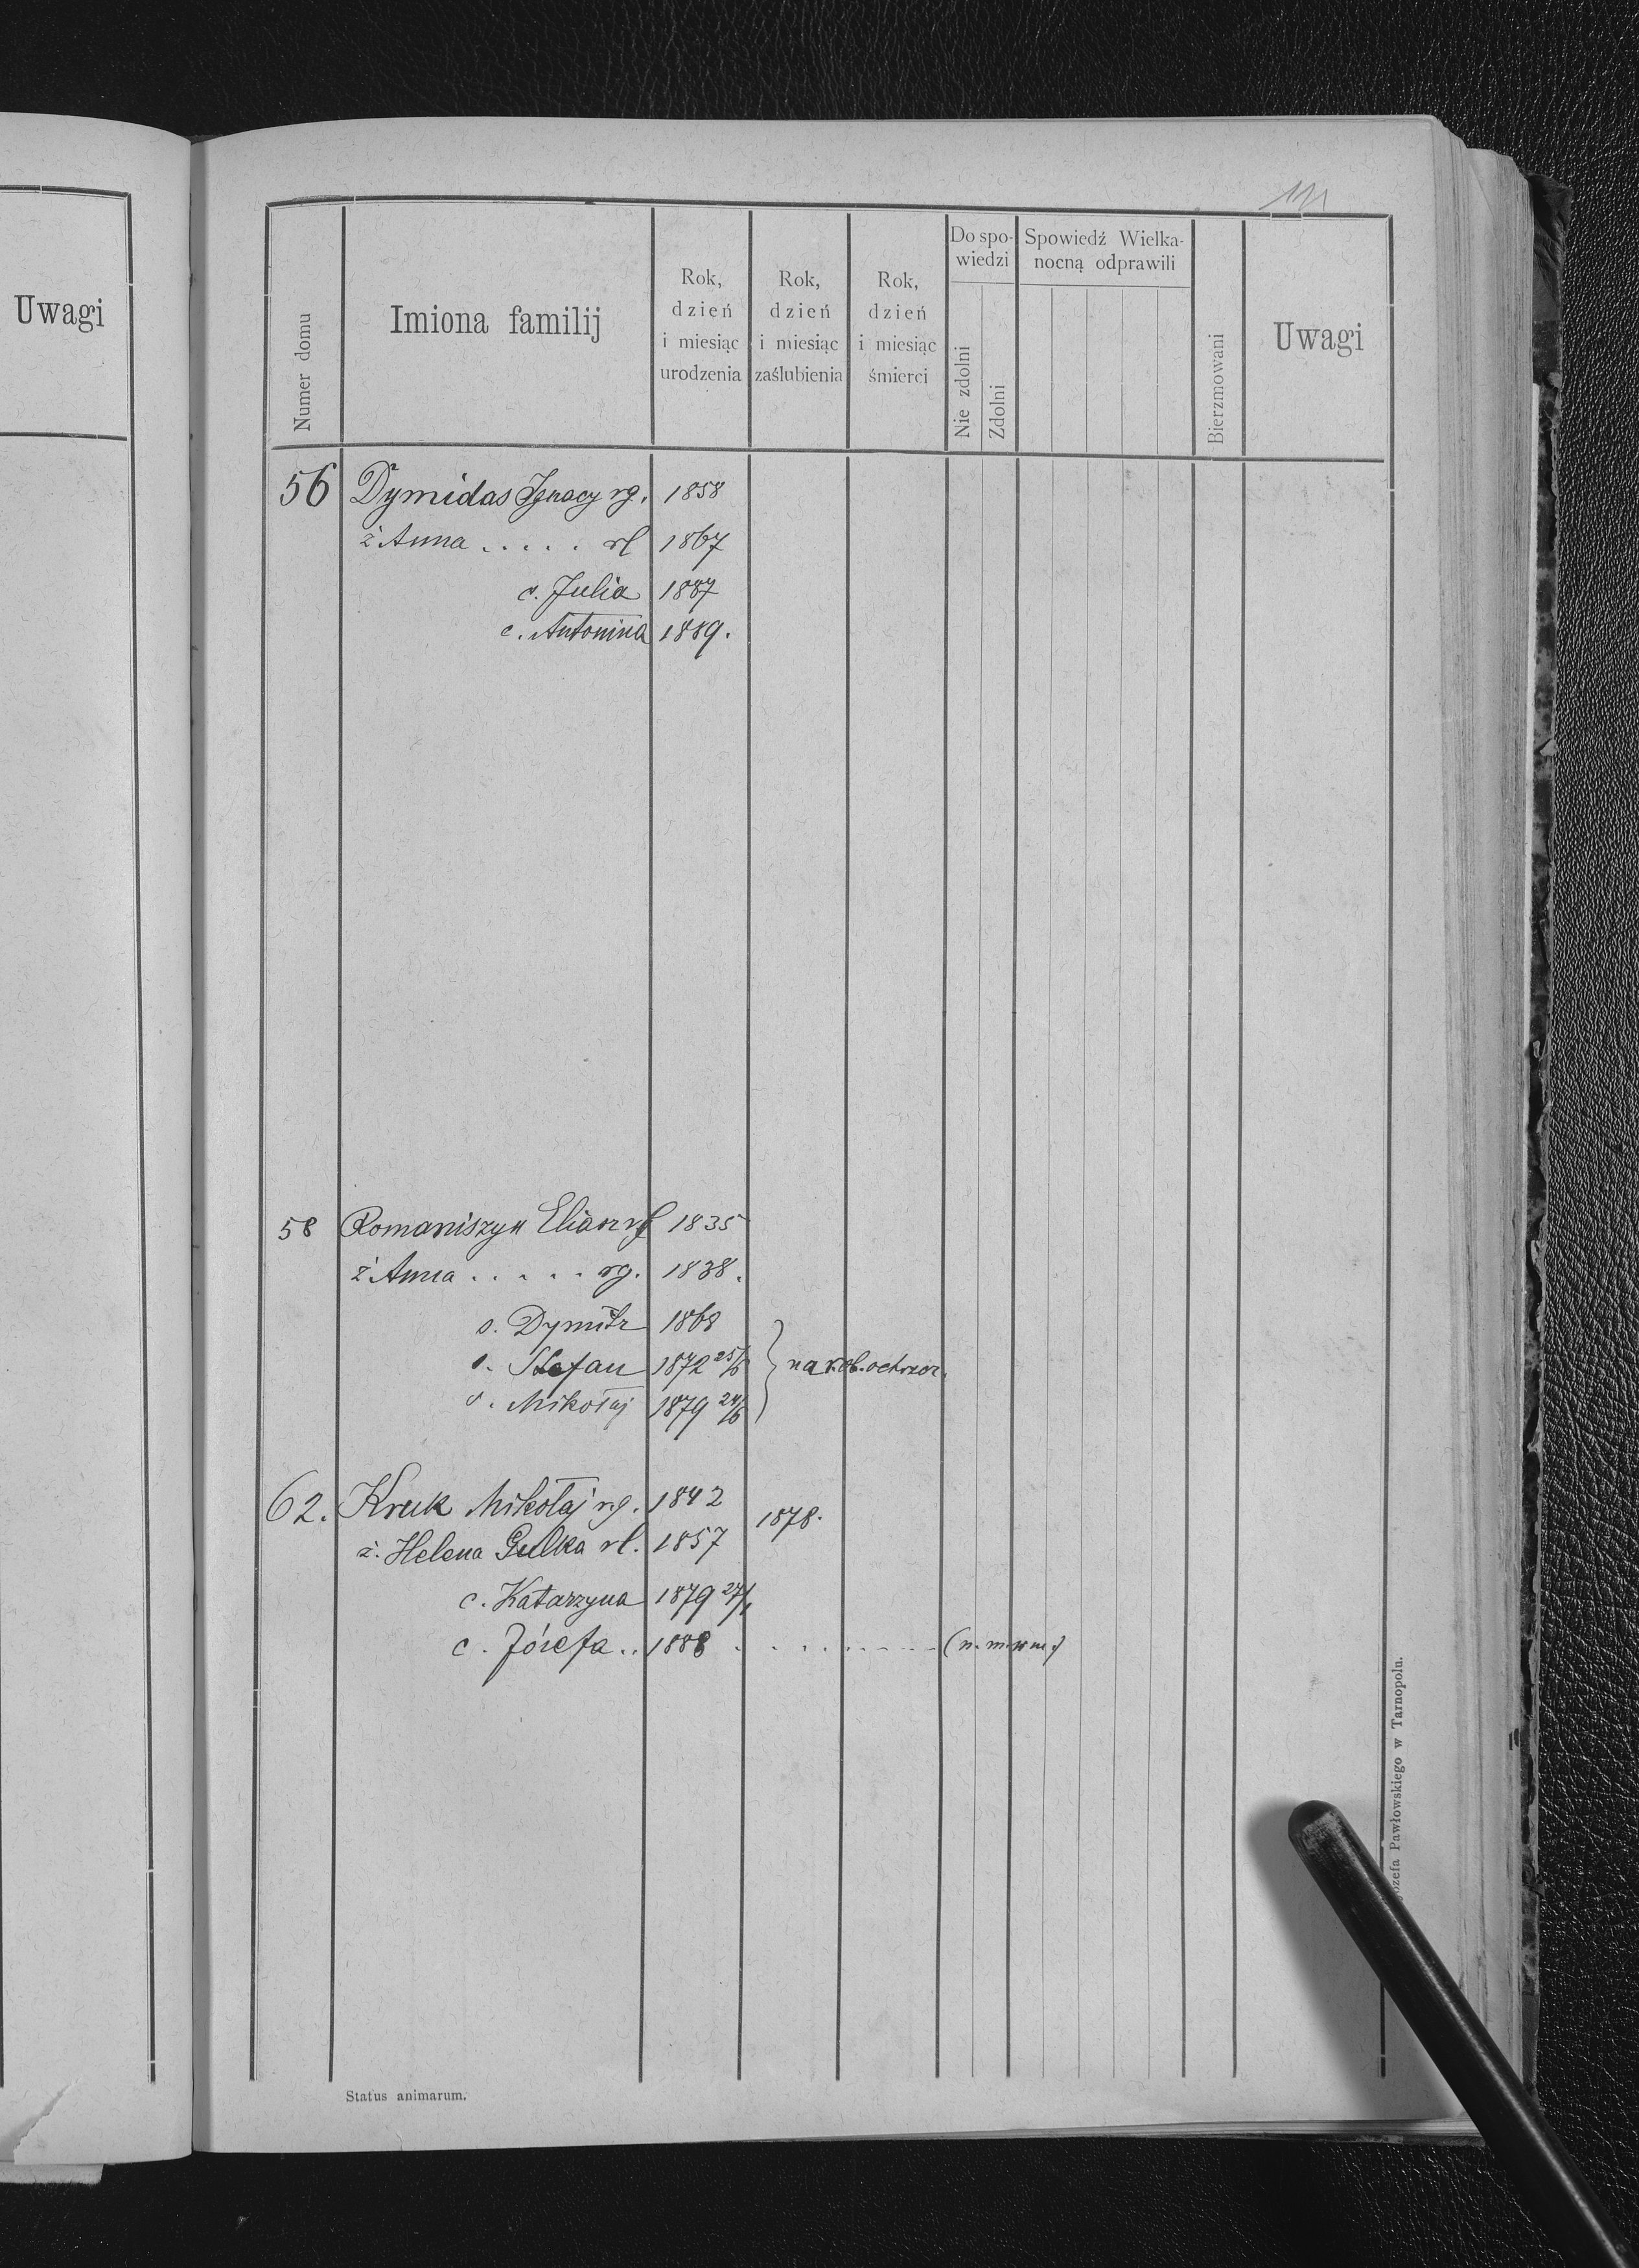 Uwagi
131
Numer domu
Imiona familij
Rok, dzień i miesiąc urodzenia
Rok, dzień i miesiąc zaślubienia
Rok, dzień i miesiąc śmierci
Do spo-
wiedzi
Nie zdolni
Zdolni
Spowiedź Wielka-
nocną odprawili
Bierzmowani
Uwagi
56 Dymidas Ignacy rg. 1858
ż Anna . . . . . rl 1867
c. Julia 1887
c. Antonina 1889.
58 Romaniszyn Eliasz rl 1835
ż Anna . . . . . rg. 1838.
s. Dymitr 1868
s. Stefan 1872 25/6 } na rob. ochrzcz.
s. Mikołaj 1879 24/6
62. Kruk Mikołaj rg. 1842
1878.
ż. Helena Gulka rl. 1857
c. Katarzyna 1879 27/1
c. Józefa .. 1888 . . . . . . . . . (n. m. w m.)
Status animarum.
Józefa Pawłowskiego w Tarnopolu.